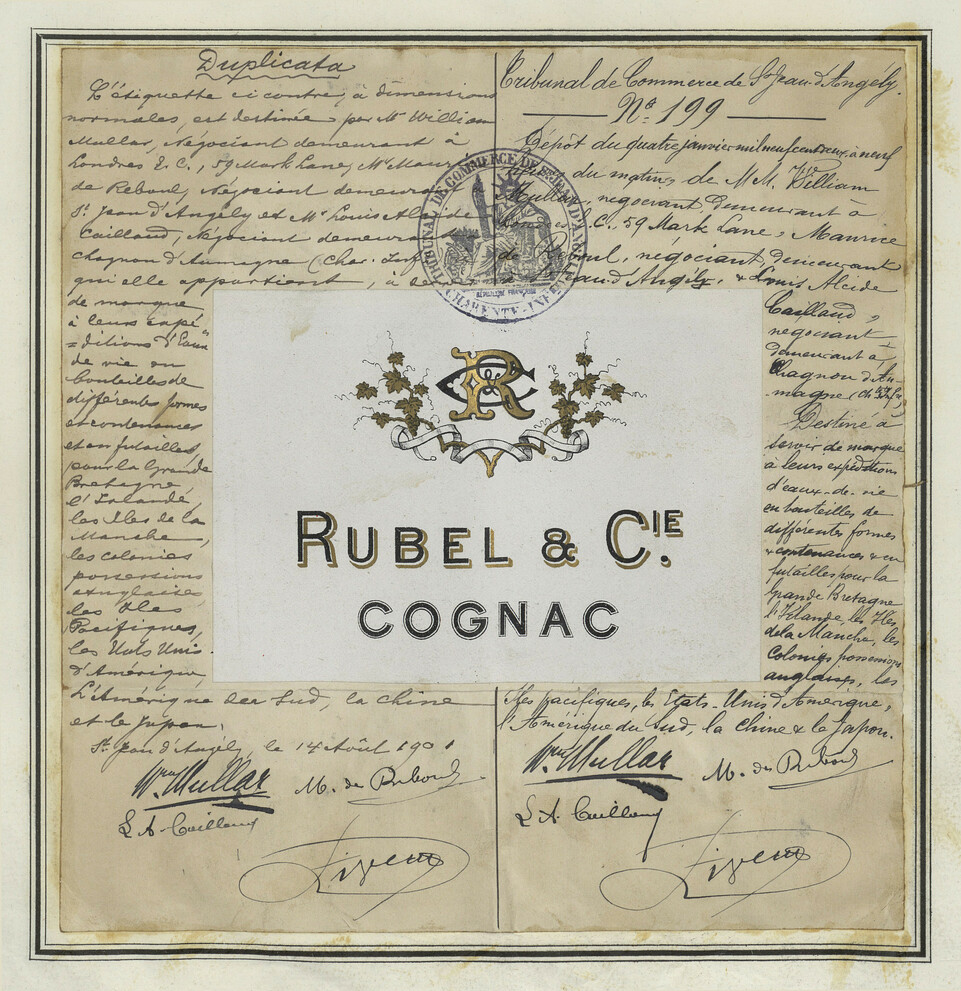 Duplicata
L'étiquette ci contre, à dimensions
normales, est destinée par Mr William
Mullar, Négociant demeurant à
Londres E. C., 59 Mark Lane, Mr Maurice
de Reboul, Négociant demeurant
St Jean d'Angély et Mr Louis Alcide
Caillaud, Négociant demeurant
Chagnon d'Aumagne (Char. Infre
qui elle appartient, à
de marque
à leurs expé
=ditions d'Eaux
de vie en
bouteilles de
différentes formes
et contenances
et en futailles
pour la Grande
Bretagne
l'Irlande,
les Iles de la
Manche,
les colonies
possessions
anglaises,
les Iles
Pacifiques,
les Etats Unis
d'Amérique,
L'Amérique du Sud, la Chine
et le Japon.
St Jean d'Angély, le 14 Août 1901
Wm Mullar
M. de Reboul
L A. Caillaud
Tribunal de Commerce de St Jean d'Angély.
No 199
Dépôt du quatre janvier mil neuf cent deux, à neuf
du matin, de MM. William
Mullar, négociant demeurant à
E.C. 59 Mark Lane, Maurice
de Reboul, négociant, demeurant
Jean d'Angély, & Louis Alcide
Caillaud,
négociant
demeurant à
Chagnon d'Au-
magne (Chte Infre)
Destiné à
servir de marque
à leurs expéditions
d'eaux-de-vie
en bouteilles de
différentes formes
& contenances & en
futailles pour la
Grande Bretagne
l'Irlande, les Iles
de la Manche, les
Colonies possessions
anglaises, les
Iles pacifiques, les Etats-Unis d'Amérique,
l'Amérique du Sud, la Chine & le Japon.
Wm Mullar
M. de Reboul
L A. Caillaud
TRIBUNAL DE COMMERCE DE ST JEAN D'ANGÉLY
RÉPUBLIQUE FRANÇAISE
CHARENTE-INFRE
R & C
RUBEL & CIE.
COGNAC